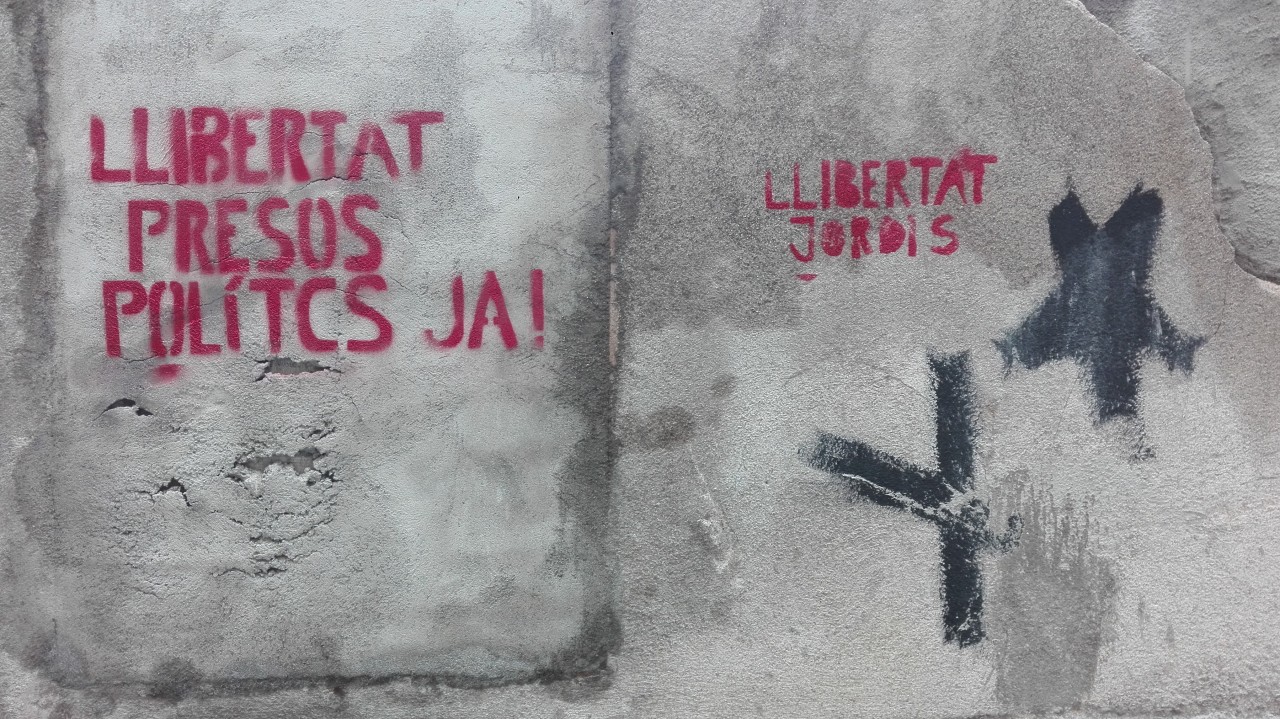 LLIBERTAT
PRESOS
POLÍTCS JA!
LLIBERTAT
JORDIS